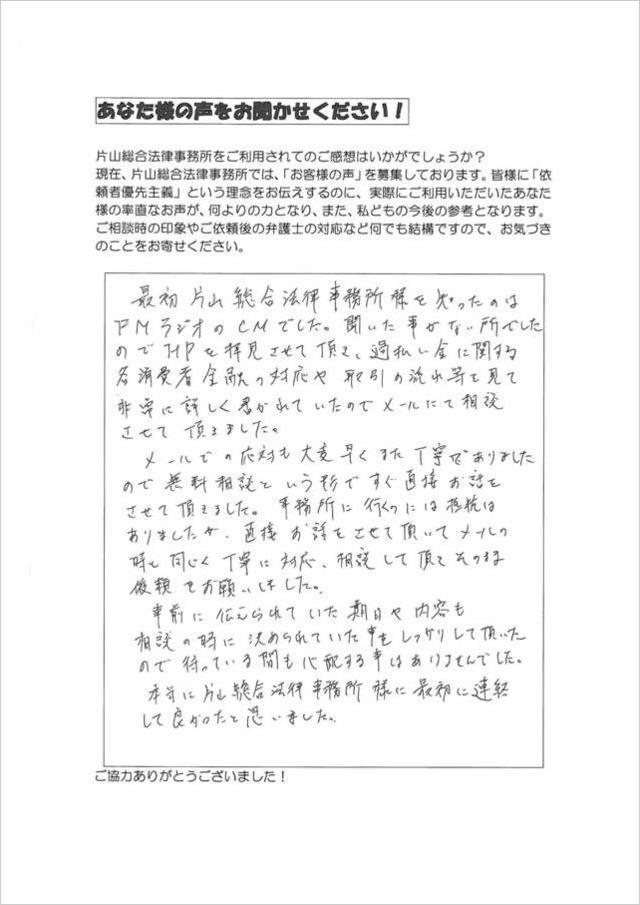 あなた様の声をお聞かせください！
片山総合法律事務所をご利用されてのご感想はいかがでしょうか？
現在、片山総合法律事務所では、「お客様の声」を募集しております。皆様に「依
頼者優先主義」という理念をお伝えするのに、実際にご利用いただいたあなた
様の率直なお声が、何よりの力となり、また、私どもの今後の参考となります。
ご相談時の印象やご依頼後の弁護士の対応など何でも結構ですので、お気づき
のことをお寄せください。
最初片山総合法律事務所様を知ったのは
FMラジオのCMでした。聞いた事がない所でした
のでHPを拝見させて頂き、過払い金に関する
各消費者金融の対応や取引の流れ等を見て
非常に詳しく書かれていたのでメールにて相談
させて頂きました。
メールでの応対も大変早くまた丁寧でありました
ので無料相談という形ですぐ直接お話を
させて頂きました。事務所に行くのには抵抗は
ありましたが、直接お話をさせて頂いてメールの
時も同じく丁寧に対応、相談して頂きそのまま
依頼をお願いしました。
事前に伝えられていた期日や内容も
相談の時に決められていた事をしっかりして頂いた
ので待っている間も心配する事はありませんでした。
本当に片山総合法律事務所様に最初に連絡
して良かったと思いました。
ご協力ありがとうございました！